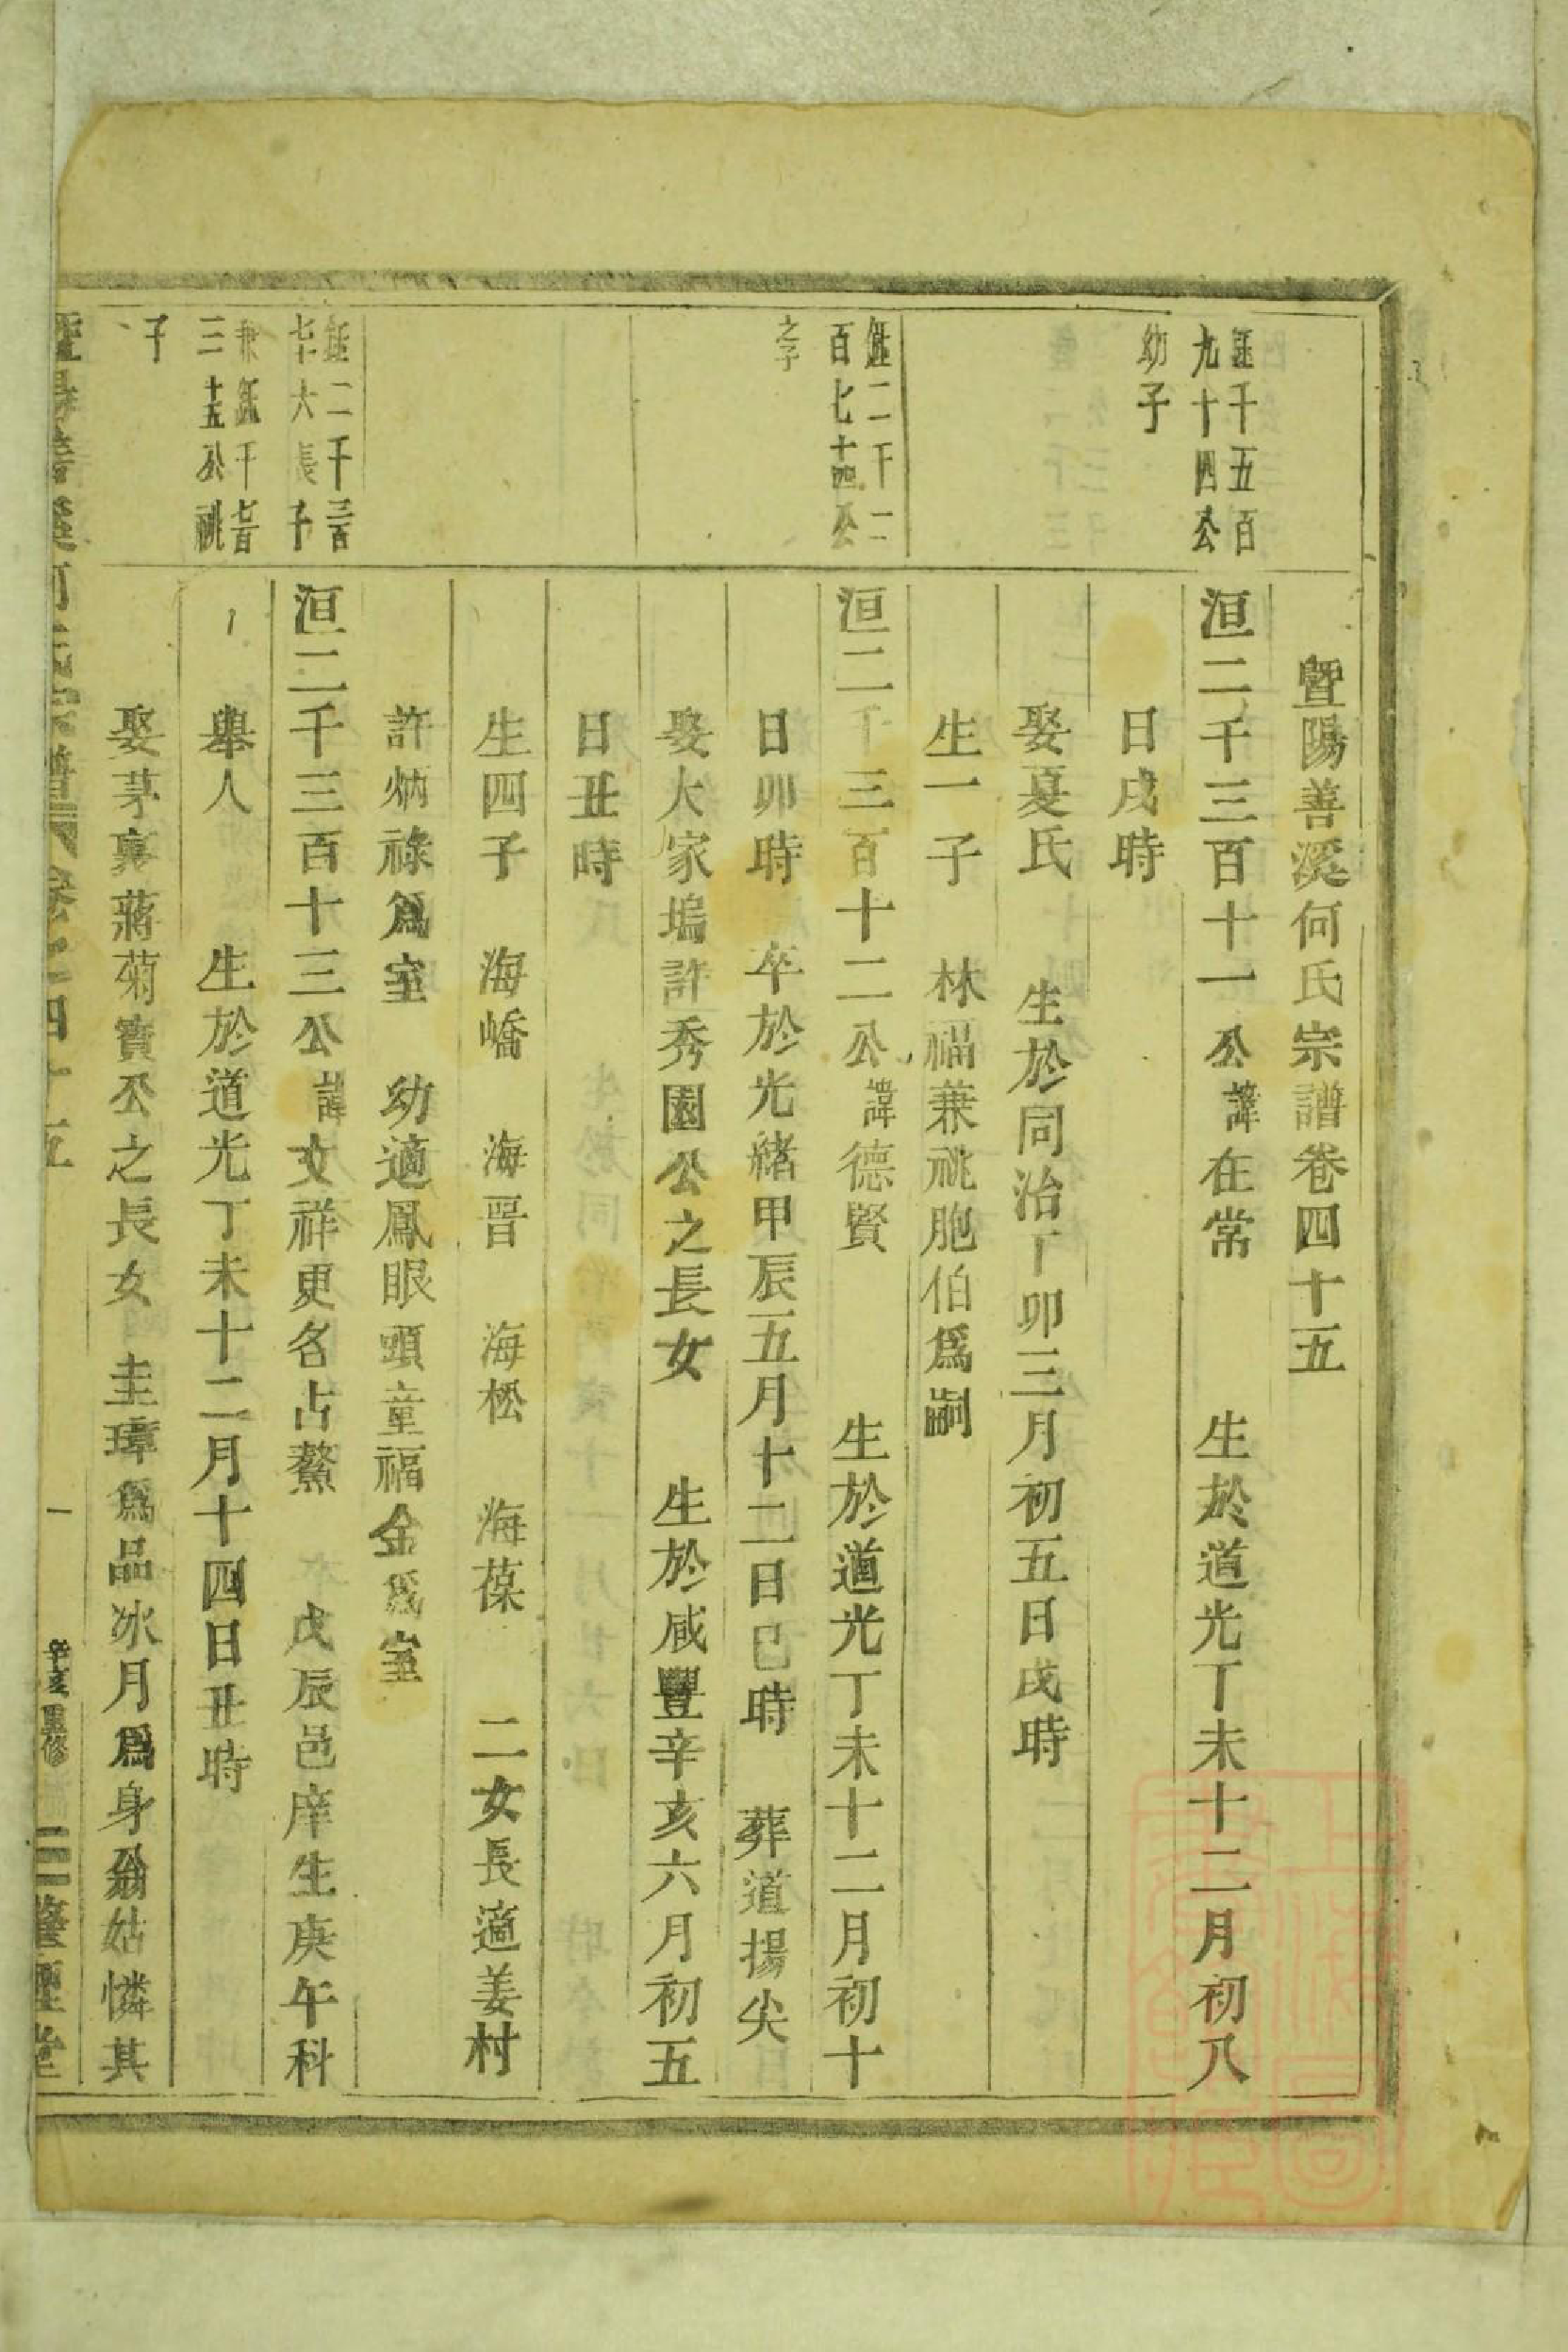 暨陽善溪何氏宗譜卷四十五
鉦千五百
九十四公
幼子
洹二千三百十一公諱在常　生於道光丁未十二月初八
日戌時
娶夏氏　生於同治丁卯三月初五日戌時
生一子　林福兼祧胞伯爲嗣
鉦二千二
百七十四公
之子
洹二千三百十二公諱德賢　生於道光丁未十二月初十
日卯時　卒於光緒甲辰五月十二日巳時　葬道揚尖
娶大家塢許秀園公之長女　生於咸豐辛亥六月初五
日丑時
生四子　海嶠　海晋　海松　海葆　二女長適姜村
許炳祿爲室　幼適鳳眼頭童福金爲室
鉦二千三百
七十六長子
兼鉦千七百
三十五公祧
子
洹二千三百十三公諱文祥更名占鰲　戊辰邑庠生庚午科
舉人　生於道光丁未十二月十四日丑時
娶茅裏蔣菊寶公之長女　圭璋爲品冰月爲身翁姑憐其
暨陽善溪何氏宗譜　卷之四十五　一　辛亥重修